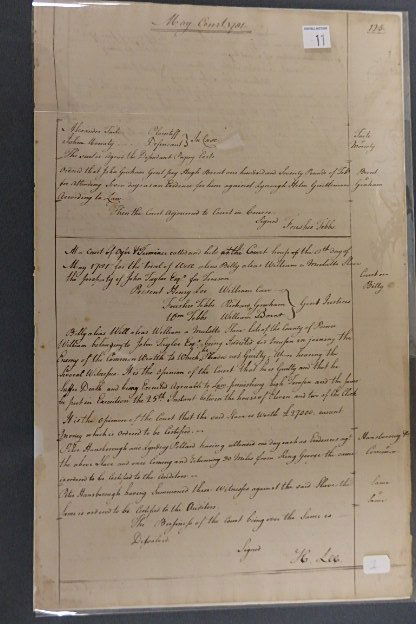 May Court 1781
11
Alexander
Plaintiff
In Case
Defendant
This suit is agreed the Defendant Paying Costs
Ordered that John Graham Gent pay Hugh Brent one hundred and Seventy Pounds of Tob
for Attending days as an Evidence for him against Lynaugh Helm Gentleman
According to Law
Brent
Graham
Then the Court Adjourned to Court in Course
Signed
Foushee Tebbs
At a Court of Oyer & Terminer called and held at the Court house of the day of
May 1781 for the trial of Will alias Billy alias William a Mulatto Slave
the property of John Tayloe Esqr for Treason
Present Henry Lee William Carr
Foushee Tebbs Richard Graham
Gent Justices
Wm Tebbs William Brent
Court on
Billy
Billy alias Will alias William a Mulatto Slave late of the County of Prince
William belonging to John Tayloe Esqr being Indicted for Treason in joining the
Enemy of the Common Wealth to Which he Pleads not Guilty Upon hearing the
Several Witnesses It is the opinion of the Court that he is Guilty and that he
Suffer Death and being Executed Agreeable to Law punishing high Treason and the same
be put in Execution the 25th Instant between the hours of Eleven and two of the Clock
It is the opinion of the Court that the said Slave is Worth £27000 current
money which is ordered to be Certified
Peter Hansbrough and Pollard having attended one day each as Evidences agt
the above Slave and once Coming and Returning 30 Miles from King George the same
is ordered to be Certified to the Auditors
Peter Hansbrough having Summoned three Witnesses against the said Slave the
Same is ordered to be Certified to the Auditors
Same
Same
The Business of the Court being over the Same is
Dissolved
Signed
H. Lee